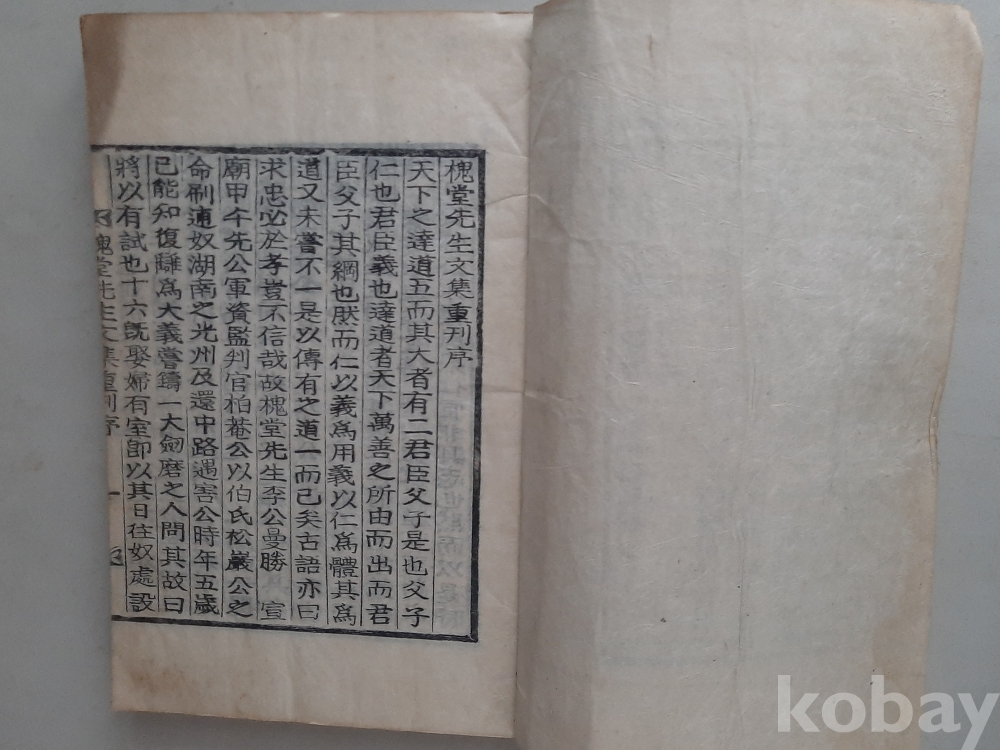 槐堂先生文集重刊序
天下之達道五而其大者有二君臣父子是也父子
仁也君臣義也達道者天下萬善之所由而出而君
臣父子其綱也然而仁以義爲用義以仁爲體其爲
道又未嘗不一是以傳有之道一而已矣古語亦曰
求忠必於孝豈不信哉故槐堂先生李公曼勝 宣
廟甲午先公軍資監判官栢菴公以伯氏松巖公之
命刷逋奴湖南之光州及還中路遇害公時年五歲
已能知復讎爲大義嘗鑄一大劒磨之人問其故曰
將以有試也十六旣娶婦有室卽以其日往奴處設
槐堂先生文集重刊序 一
kobay